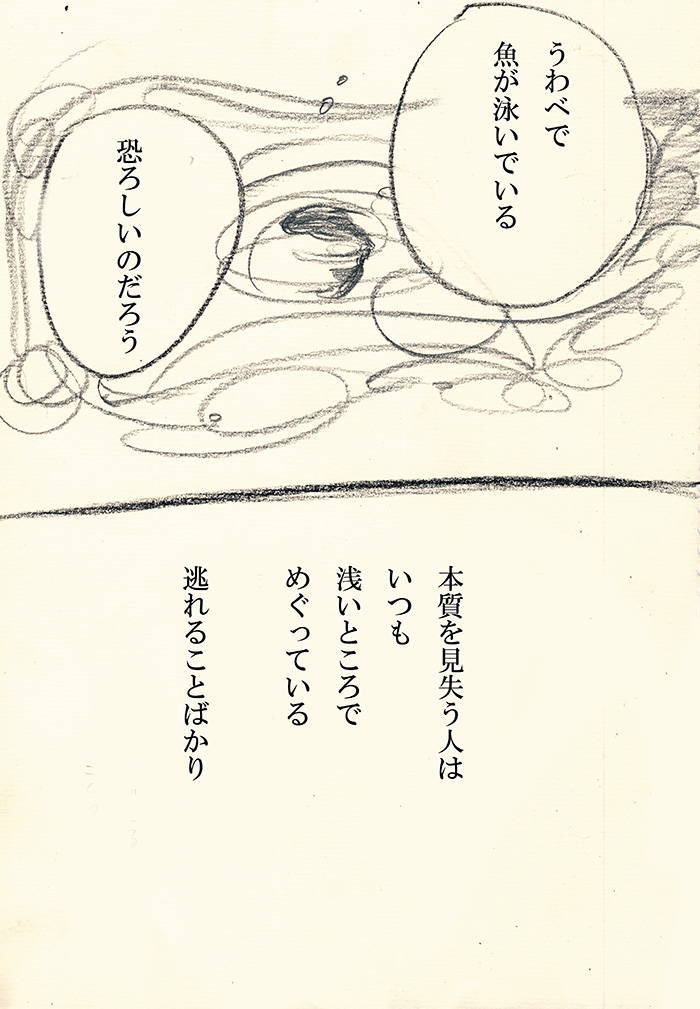 うわべで
魚が泳いでいる
恐ろしいのだろう
本質を見失う人は
いつも
浅いところで
めぐっている
逃れることばかり